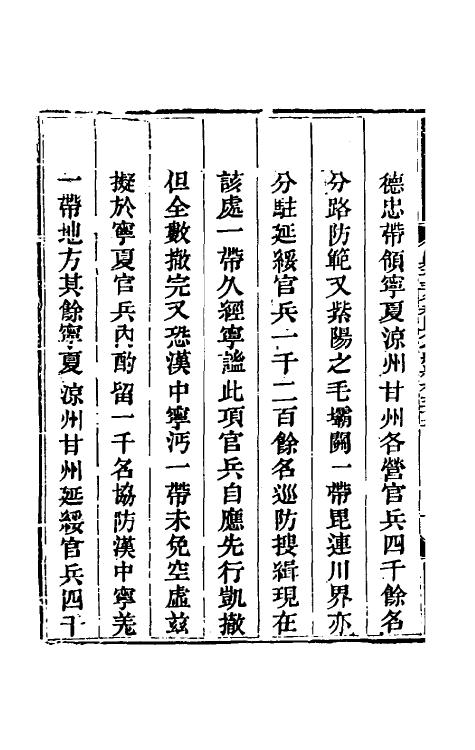 德忠帶領寧夏涼州甘州各營官兵四千餘名
分路防範又紫陽之毛壩關一帶毘連川界亦
分駐延綏官兵一千二百餘名巡防搜緝現在
該處一帶久經寧謐此項官兵自應先行凱撤
但全數撤完又恐漢中寧沔一帶未免空虛茲
擬於寧夏官兵內酌留一千名協防漢中寧羌
一帶地方其餘寧夏涼州甘州延綏官兵四千